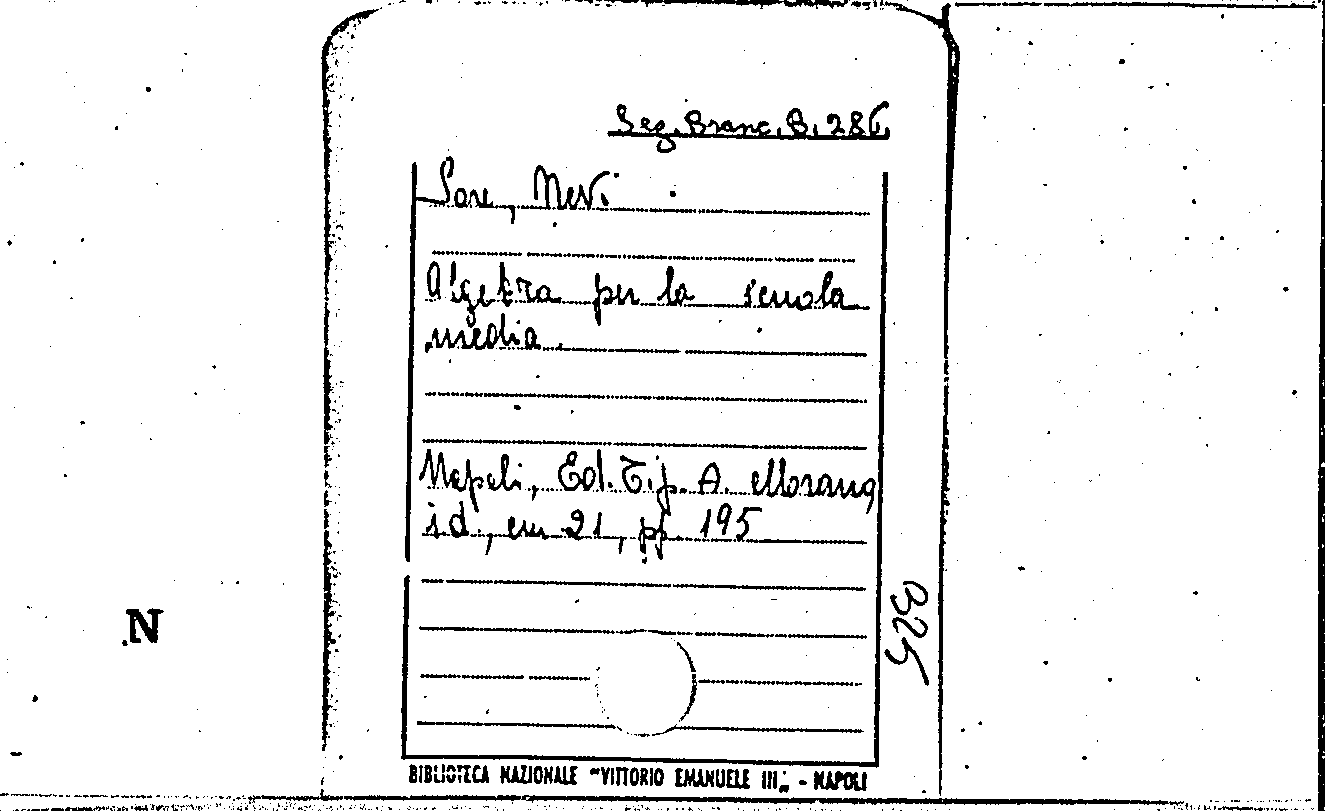 Seg. Branc. B. 286
Sore, Nevi
Algebra per la scuola
media.
Napoli, Ed. Tip. A. Morano,
s.d., cm 21, pp. 195
N
325
BIBLIOTECA NAZIONALE "VITTORIO EMANUELE III„ - NAPOLI